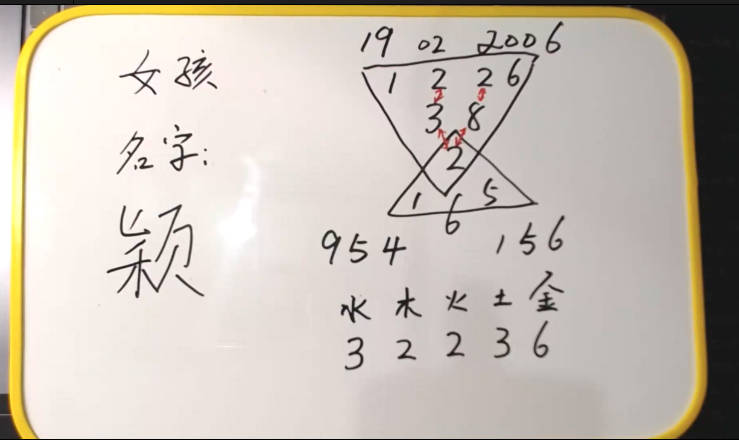 女孩
名字:
颖
19 02 2006
1 2 2 6
3 8
2
1 6 5
6
954 156
水 木 火 土 金
3 2 2 3 6